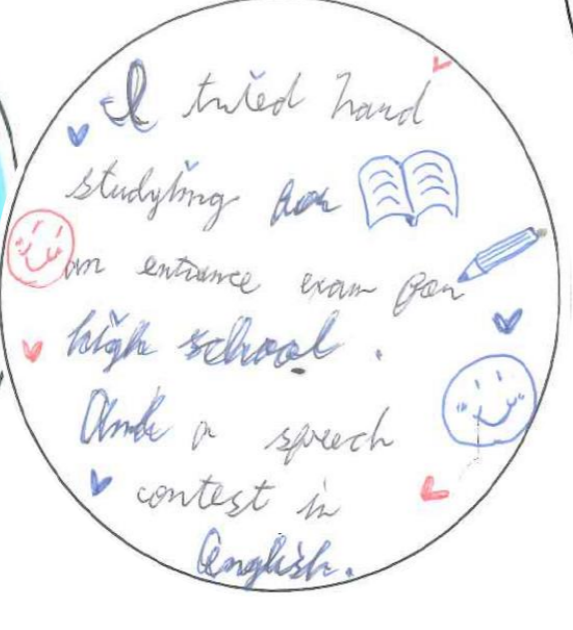 I tried hard
studying for
an entrance exam for
high school.
And a speech
contest in
English.